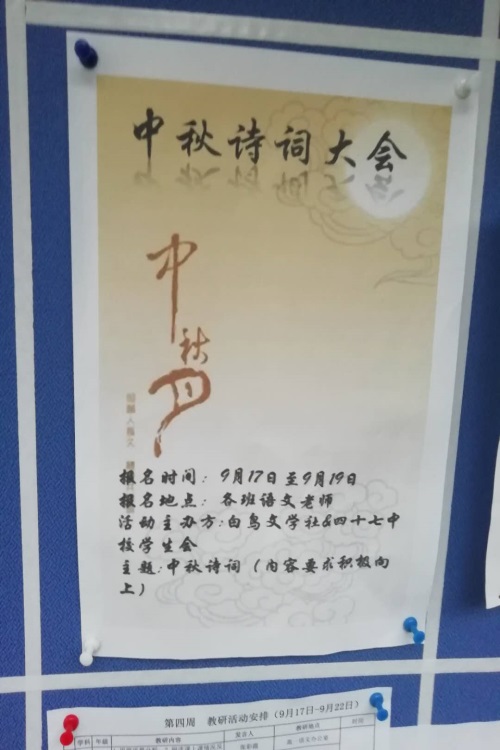 中秋诗词大会
中秋月
报名时间：9月17日至9月19日
报名地点：各班语文老师
活动主办方:白鸟文学社&四十七中
校学生会
主题:中秋诗词（内容要求积极向
上）
第四周 教研活动安排（9月17日-9月22日）
学科 年级 教研内容 发言人 教研地点 时间